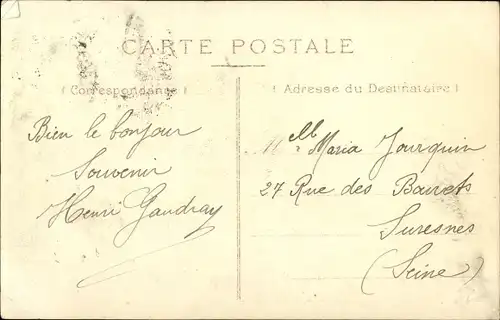 CARTE POSTALE
( Correspondance )
( Adresse du Destinataire )
Bien le bonjour
Souvenir
Henri Gaudray
Mlle Maria Jourquin
27 Rue des Bauvets
Suresnes
(Seine)